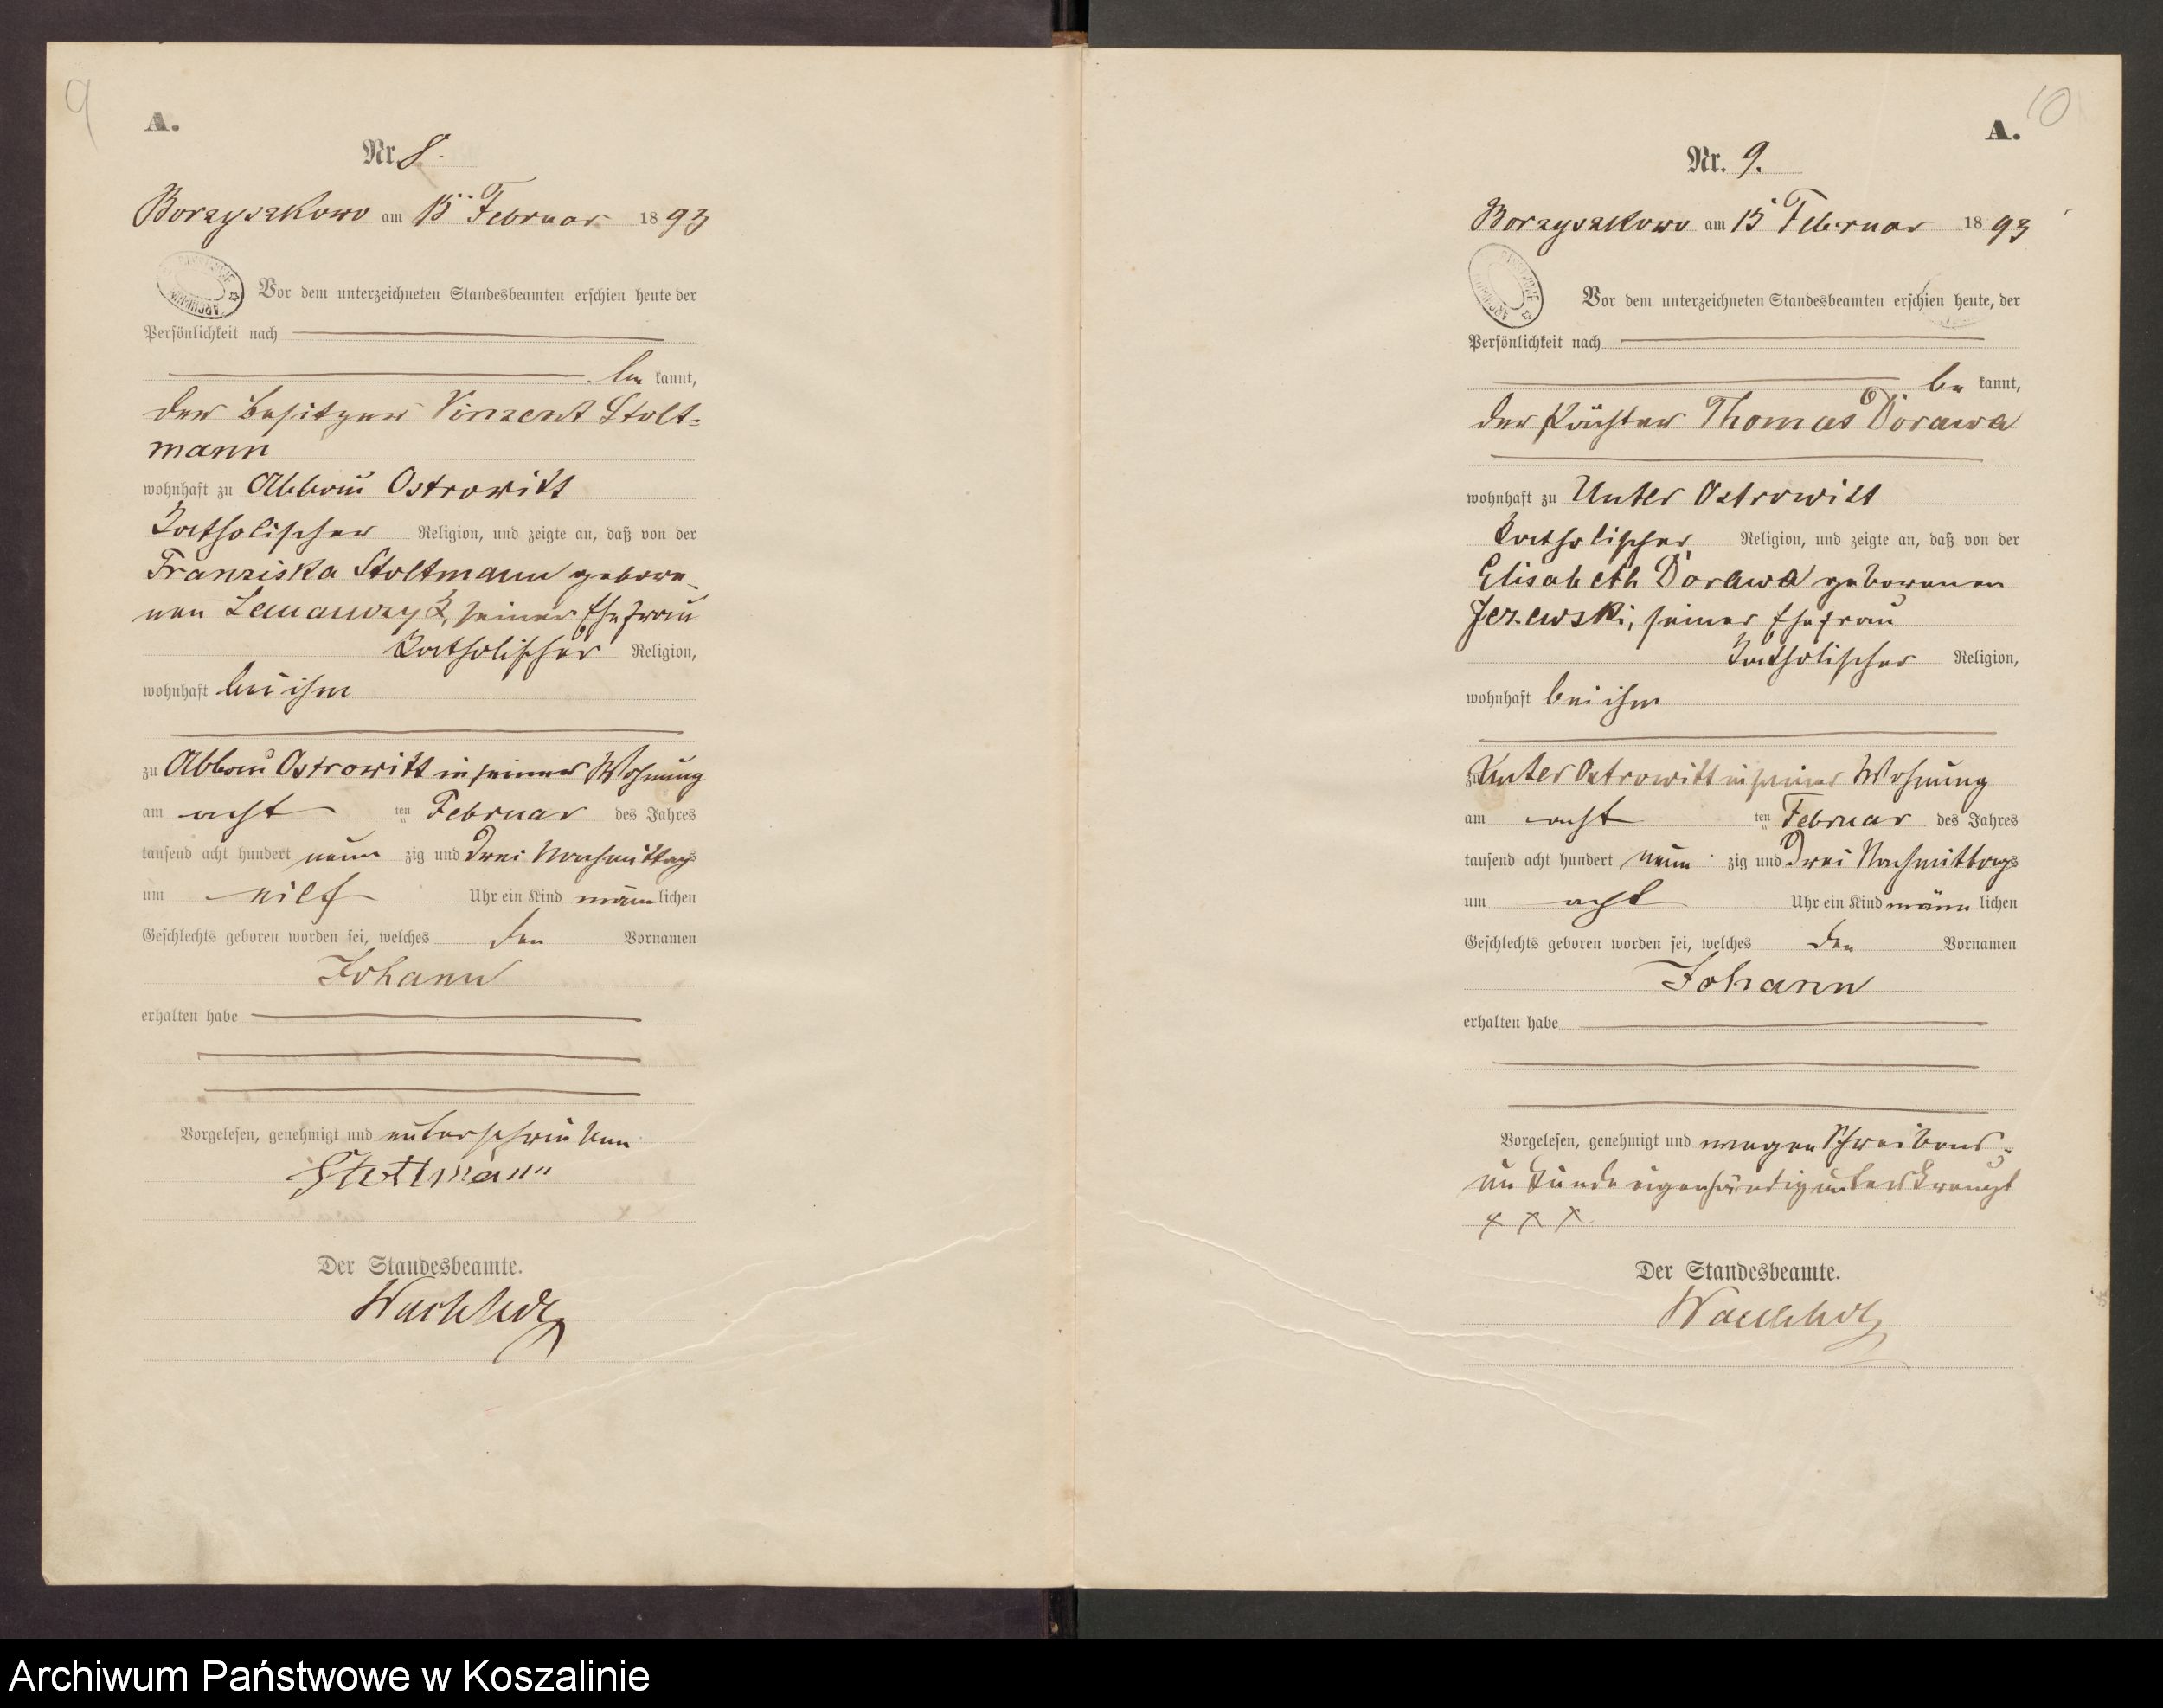 9
A.
Nr. 8.
Borzyszkowo am 15 Februar 1893
Vor dem unterzeichneten Standesbeamten erschien heute der
Persönlichkeit nach
be kannt,
der Besitzer Vinzent Stolt=
mann
wohnhaft zu Abbau Ostrowitt
katholischer Religion, und zeigte an, daß von der
Franziska Stoltmann gebore¬
nen Lemanczyk, seiner Ehefrau
katholischer Religion,
wohnhaft bei ihm
zu Abbau Ostrowitt in seiner Wohnung
am acht ten Februar des Jahres
tausend acht hundert neun zig und drei Nachmittags
um elf Uhr ein Kind männ lichen
Geschlechts geboren worden sei, welches den Vornamen
Johann
erhalten habe
Vorgelesen, genehmigt und unterschrieben
Stoltmann
Der Standesbeamte.
Wachholz
10
A.
Nr. 9.
Borzyszkowo am 15 Februar 1893
Vor dem unterzeichneten Standesbeamten erschien heute, der
Persönlichkeit nach
be kannt,
der Thomas Dorawa
wohnhaft zu Unter Ostrowitt
katholischer Religion, und zeigte an, daß von der
Elisabeth Dorawa geborenen
Jerzewski, seiner Ehefrau
katholischer Religion,
wohnhaft bei ihm
zu Unter Ostrowitt in seiner Wohnung
am acht ten Februar des Jahres
tausend acht hundert neun zig und drei Nachmittags
um acht Uhr ein Kind männ lichen
Geschlechts geboren worden sei, welches den Vornamen
Johann
erhalten habe
Vorgelesen, genehmigt und wegen Schreibens=
unkunde eigenhändig unterkreuzt
x x x
Der Standesbeamte.
Wachholz
Archiwum Państwowe w Koszalinie